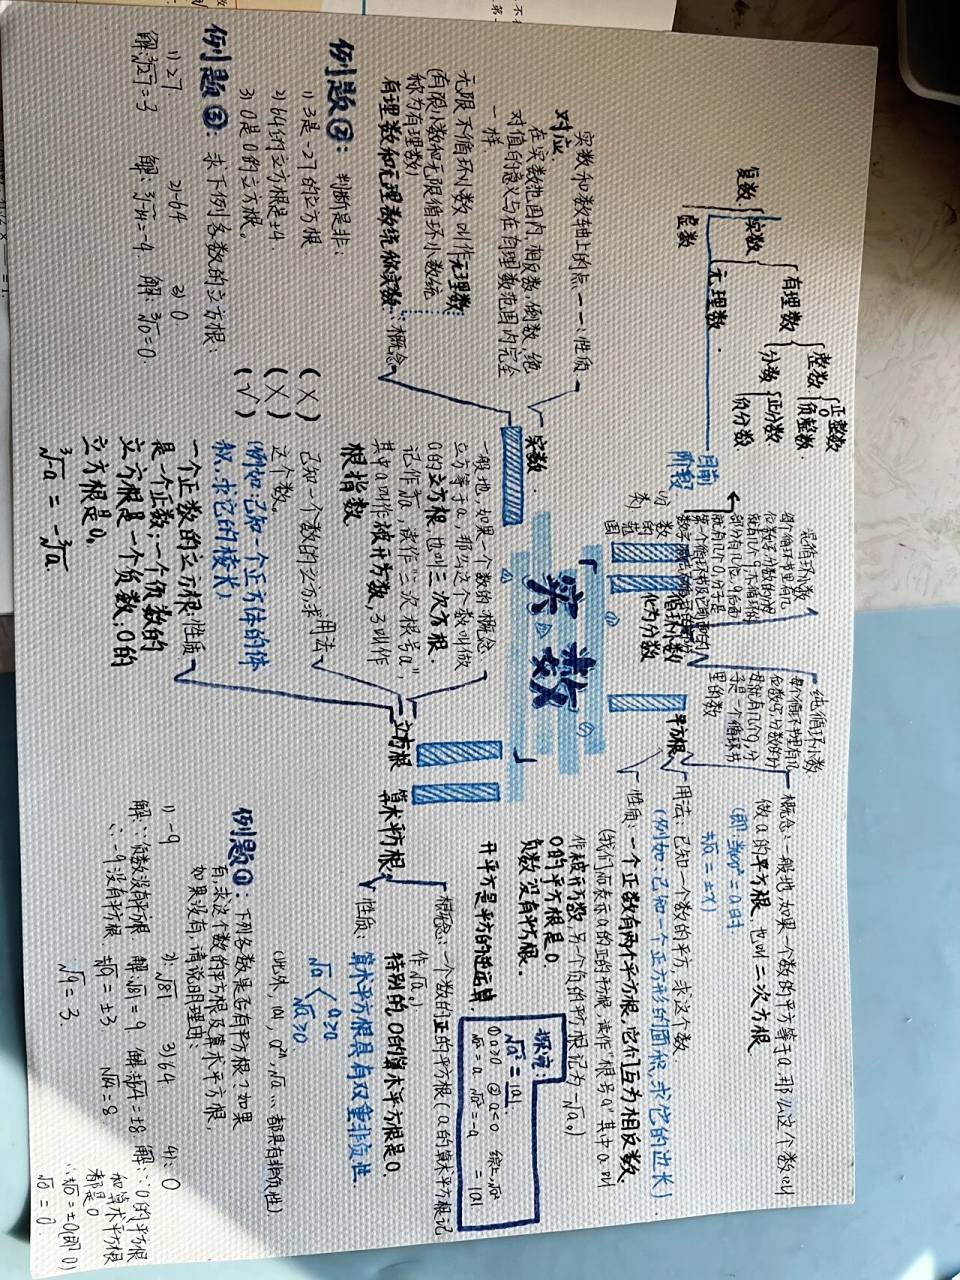 「实数」
复数
实数
虚数
有理数
无理数
整数
分数
正整数
0
负整数
正分数
负分数
目前
阶段
数的范围
分类
循环小数
化为分数
纯循环小数
里的数
混循环小数
平方根
概念:一般地,如果一个数的平方等于a,那么这个数叫
做a的平方根,也叫二次方根
用法:已知一个数的平方,求这个数
(例如:已知一个正方形的面积,求它的边长)
性质:一个正数有两个平方根,它们互为相反数
作被开方数,另一个负的平方根记为-√a。)
0的平方根是0.
负数没有平方根.
开平方是平方的逆运算
探究:
√a² = |a|
①a≥0 ②a<0 综上√a²
√a² = a √a² = -a = |a|
算术平方根
概念:一个数的正的平方根(a的算术平方根记
作√a。)
特别的,0的算术平方根是0.
性质:算术平方根具有双重非负性.
√a
a≥0
√a≥0
例题①:下列各数是否有平方根?如果
有,求这个数的平方根及算术平方根.
如果没有,请说明理由:
1)-9
2)√81
3)64
4):0
解:∵负数没有平方根.
∴-9没有平方根
解:√81=9
±√9=±3
√9=3.
√64=8.
解:∵0的平方根
和算术平方根
都是0
∴±√0=±0(即0)
√0=0
立方根
一般地,如果一个数的概念
立方等于a,那么这个数叫做
a的立方根,也叫三次方根.
记作∛a,读作“三次根号a”,
其中a叫作被开方数,3叫作
根指数
已知一个数的立方,求用法
这个数.
(例如:已知一个正方体的体
积,求它的棱长)
一个正数的立方根性质
是一个正数;一个负数的
立方根是一个负数,0的
立方根是0。
∛-a = -∛a
实数
实数和数轴上的点一一性质
对应.
在实数范围内,相反数,倒数,绝
对值的意义与在有理数范围内完全
一样.
无限不循环小数叫作无理数:
(有限小数和无限循环小数统
称为有理数)
有理数和无理数统称实数:概念
例题②:判断是非:
1)3是-27的立方根 (X)
2)64的立方根是±4 (X)
3)0是0的立方根。 (√)
例题③:求下例各数的立方根:
1)27 2)-64 3)0
解:∛27=3 解:∛-64=-4. 解:∛0=0.